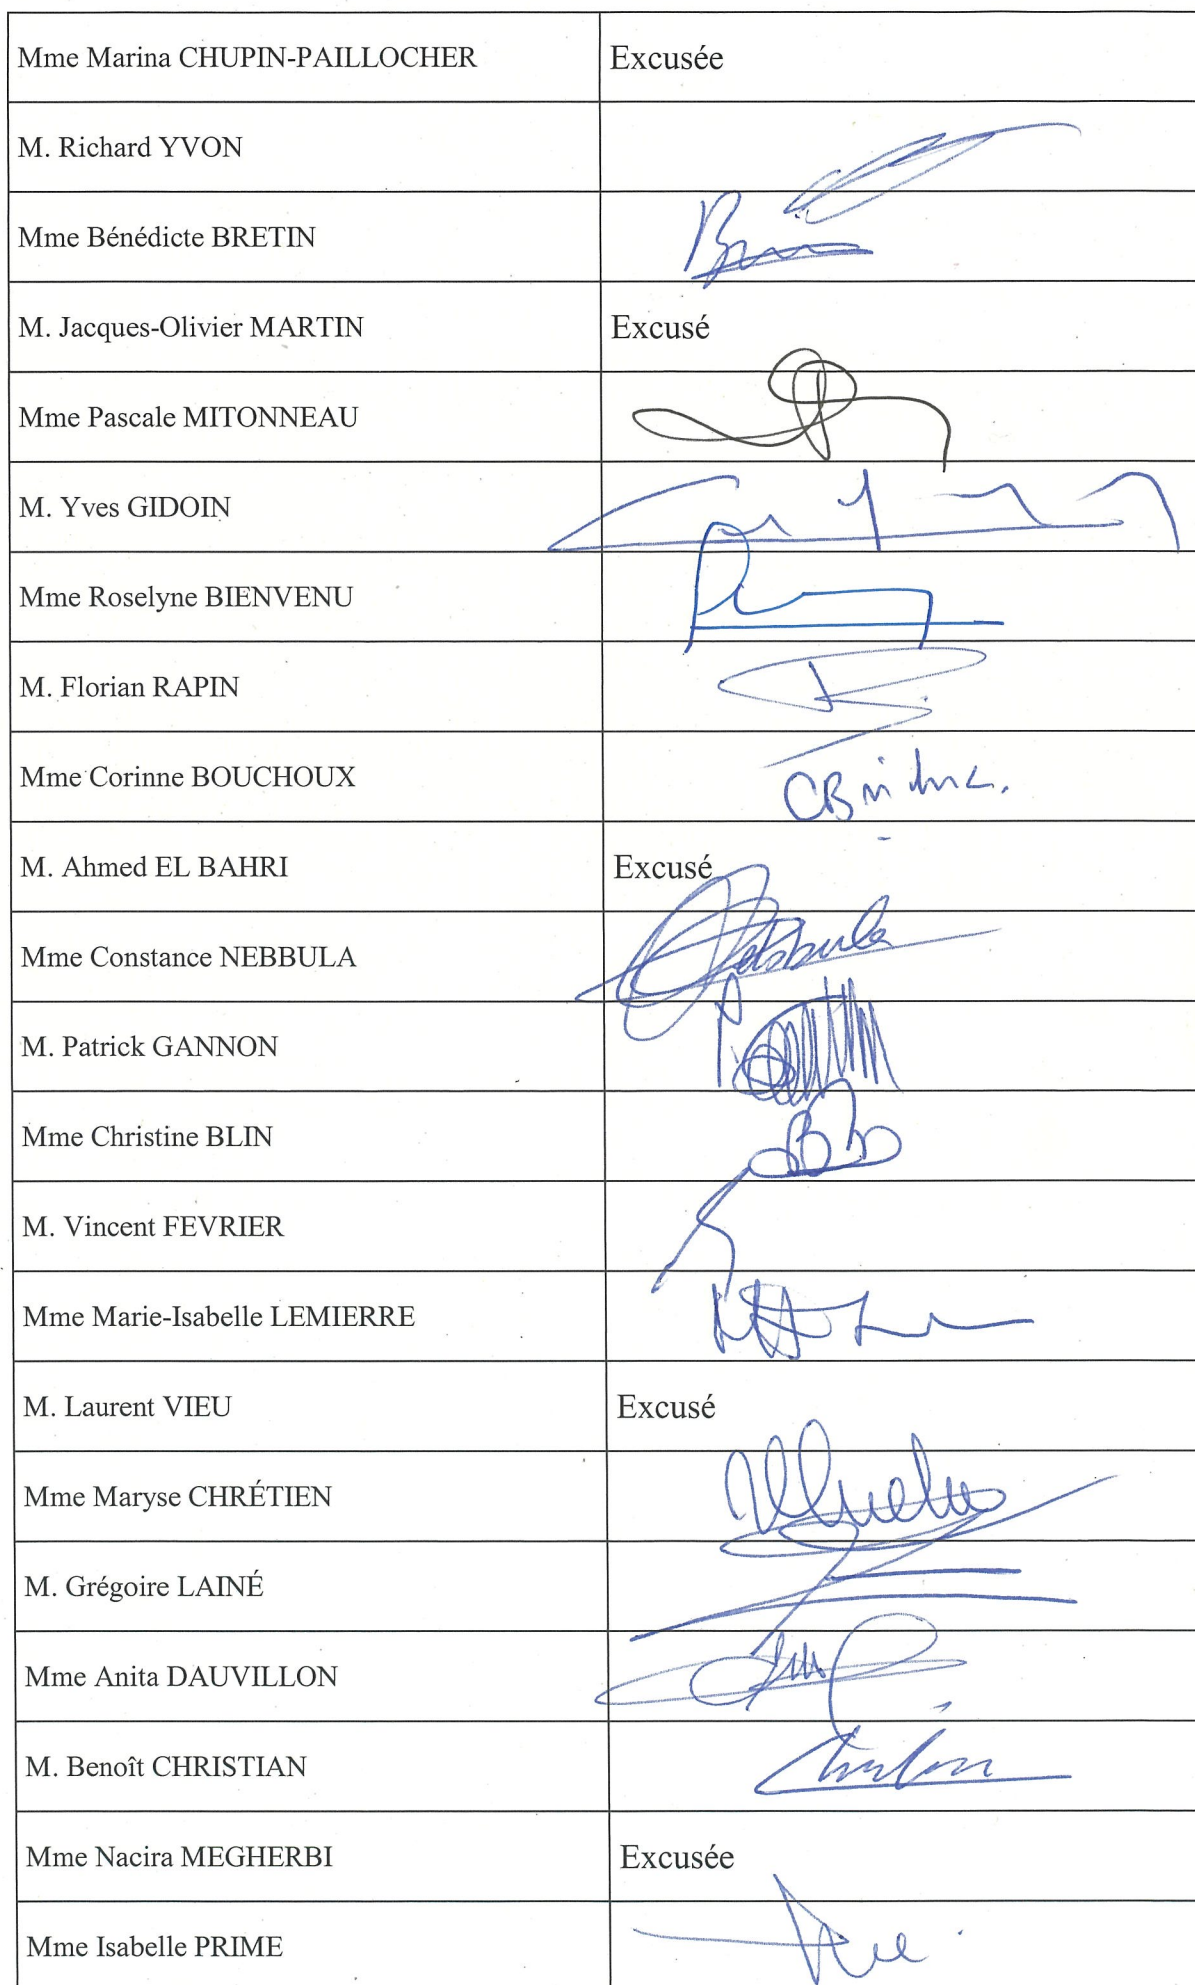 Mme Marina CHUPIN-PAILLOCHER Excusée
M. Richard YVON
Mme Bénédicte BRETIN
M. Jacques-Olivier MARTIN Excusé
Mme Pascale MITONNEAU
M. Yves GIDOIN
Mme Roselyne BIENVENU
M. Florian RAPIN
Mme Corinne BOUCHOUX
M. Ahmed EL BAHRI Excusé
Mme Constance NEBBULA
M. Patrick GANNON
Mme Christine BLIN
M. Vincent FEVRIER
Mme Marie-Isabelle LEMIERRE
M. Laurent VIEU Excusé
Mme Maryse CHRÉTIEN
M. Grégoire LAINÉ
Mme Anita DAUVILLON
M. Benoît CHRISTIAN
Mme Nacira MEGHERBI Excusée
Mme Isabelle PRIME